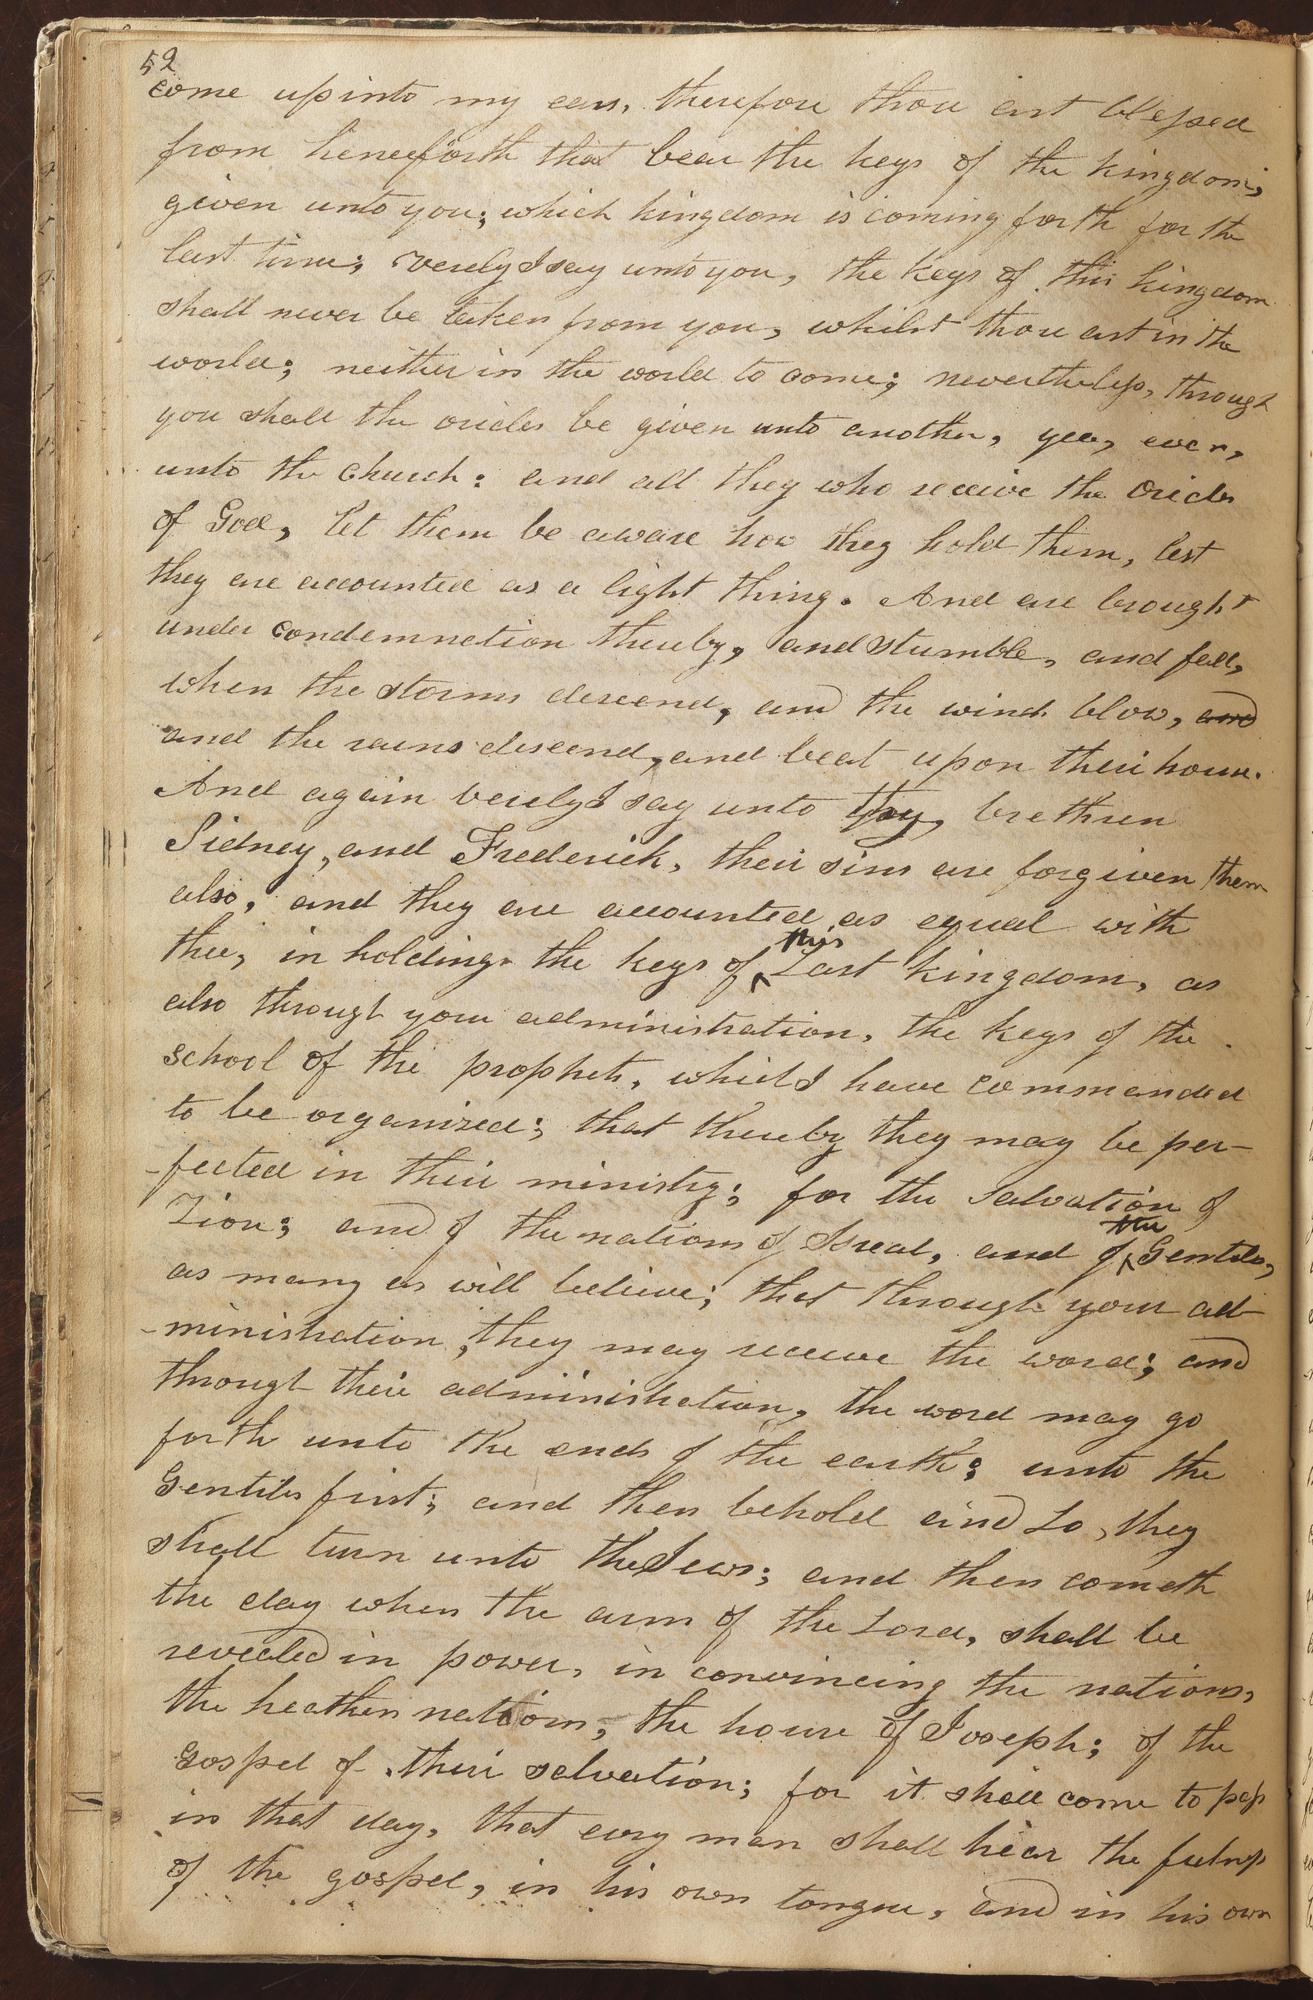 52
come up into my ears, therefore thou art blessed
from henceforth that bear the keys of the kingdom,
given unto you; which kingdom is coming forth for the
last time; verely I say unto you, the keys of this kingdom
shall never be taken from you, whilst thou art in the
world; neither in the world to come; nevertheless, through
you shall the oricles be given unto another, yea, even,
unto the church: and all they who receive the oricles
of God, let them be aware how they hold them, lest
they are accounted as a light thing. And are brought
under condemnation thereby, and stumble, and fall,
when the storms descend, and the winds blow, and
and the rains descend, and beat upon their house.
And again verely I say unto thy, brethren
Sidney, and Frederick, their sins are forgiven them
also, and they are accounted as equal with
this
thee, in holding the keys of Last kingdom, as
also through your administration, the keys of the
school of the prophets, which I have commanded
to be organized; that thereby they may be per-
-fected in their ministry; for the salvation of
the
Zion; and of the nations of Isreal, and of Gentiles,
as many as will believe; that through your ad-
-ministration, they may receive the word; and
through their administration, the word may go
forth unto the ends of the earth; unto the
Gentiles first; and then behold and Lo, they
shall turn unto the Jews; and then cometh
the day when the arm of the Lord, shall be
revealed in power, in convincing the nations,
the heathen nations, the house of Joseph; of the
gospel of their salvation; for it shall come to pass
in that day, that evry man shall hear the fulness
of the gospel, in his own tongue, and in his own